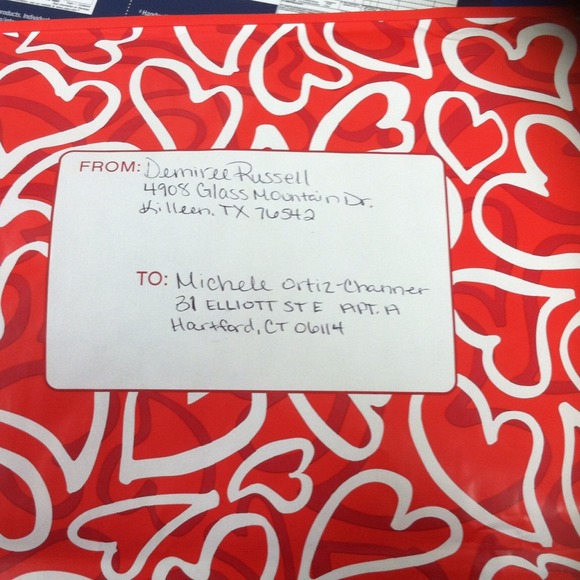 FROM: Demiree Russell
4908 Glass Mountain Dr.
Killeen, TX 76542
TO: Michele Ortiz-Channer
31 ELLIOTT ST E APT. A
Hartford, CT 06114